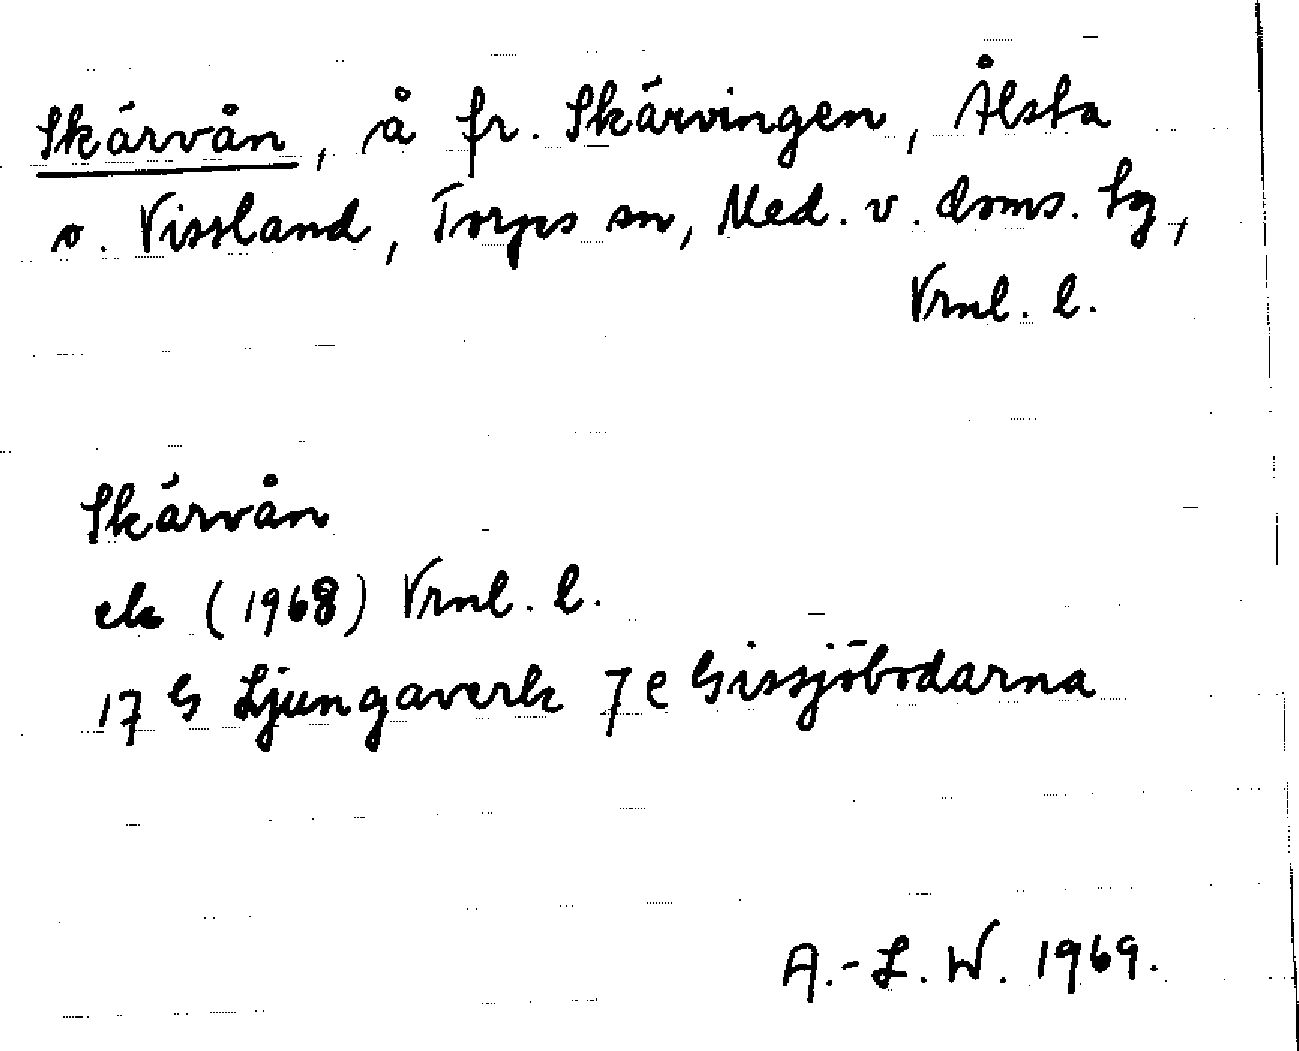 Skärvån, å fr. Skärvingen, Ålsta
o. Vissland, Torps sn, Med. v. doms. tg,
Vrnl. l.
Skärvån
ek (1968) Vrnl. l.
17 G Ljungaverk 7 e Gissjöbodarna
A.-L. W. 1969.